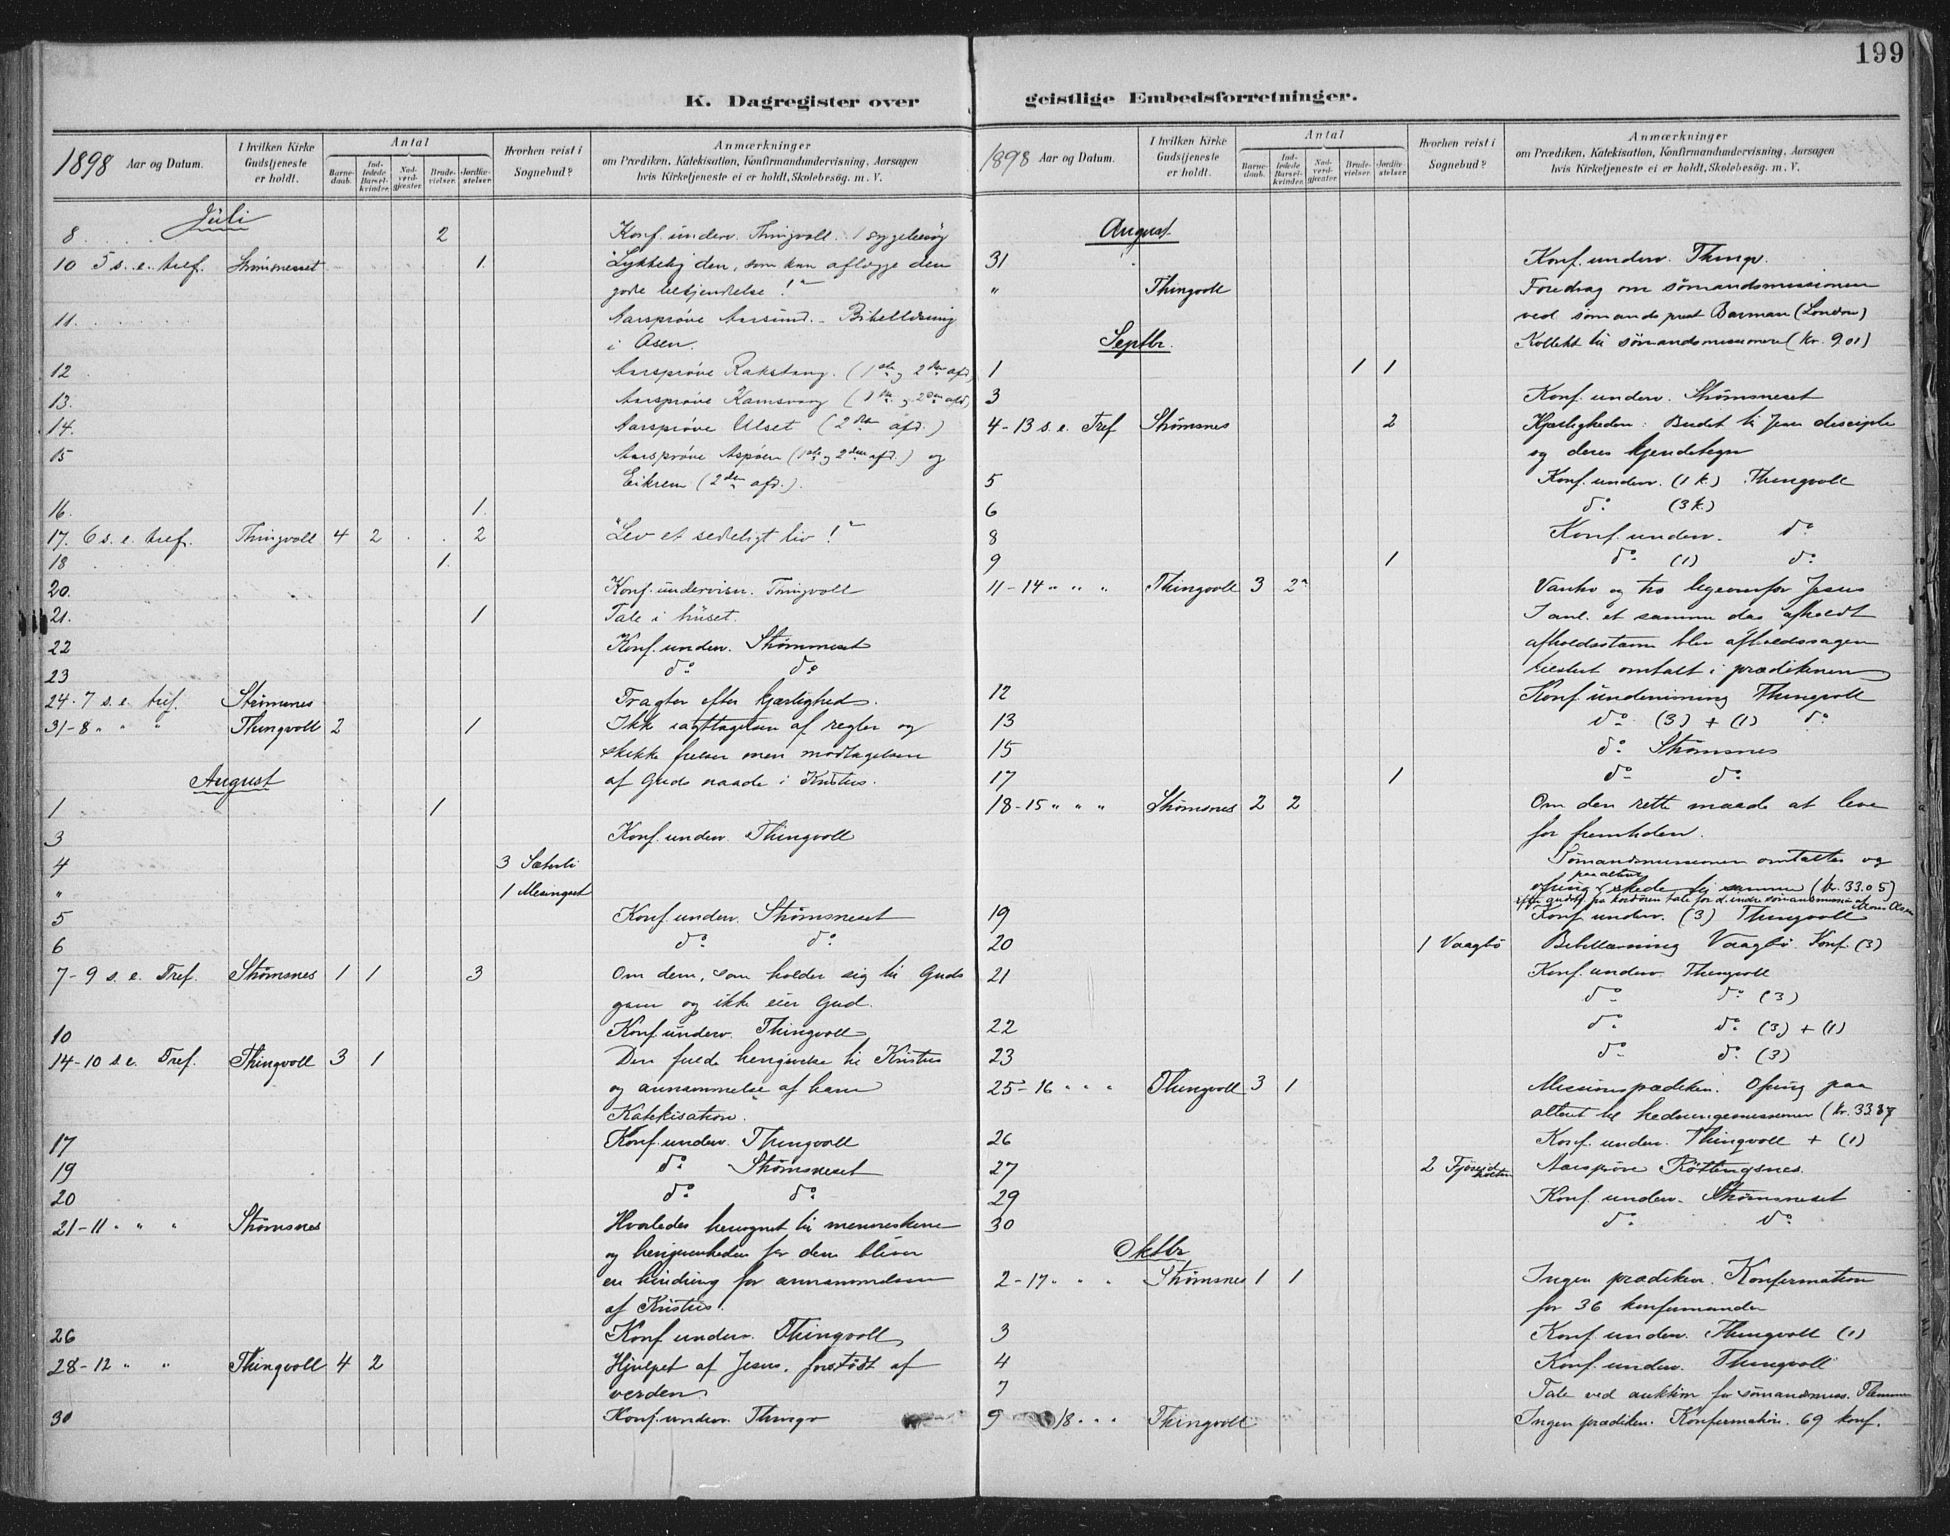 199
K. Dagregister over geistlige Embedsforretninger.
1898 Aar og Datum.
I hvilken Kirke Gudstjeneste er holdt.
Antal
Barnedaab.
Indledede Barselkvinder.
Nadverdgjæster
Brudevielser.
Jordfæstelser.
Hvorhen reist i Sognebud?
Anmærkninger
om Prædiken, Katekisation, Konfirmandundervisning, Aarsagen
hvis Kirketjeneste ei er holdt, Skolebesøg. m. V.
Juli
8 2 Konf. underv. Thingvoll. 1 sygebesøg
10 5 s. e. tref. Strømsneset 1. "Lykkelig den, som kan aflægge den
gode bekjendelse!"
11. Aarsprøve Aarsund. - Bibellæsning
i Aasen.
12 Aarsprøve Rakstang. (1ste og 2den afd)
13. Aarsprøve Kamsvaag (1ste og 2den afd)
14. Aarsprøve Ulset (2den afd.)
15 Aarsprøve Aspøen (1ste og 2den afd.) og
Eikrem (2den afd.).
16. 1.
17. 6 s. e. tref. Thingvoll 4 2 . . 2 "Lev et sedeligt liv!"
18 1.
20. Konf. undervisn. Tingvoll
21. 1 Tale i huset.
22 Konf. underv. Strømsneset
23 do do
24-7 s. e. tref. Strømsnes Tragter efter kjærlighed.
31-8 " " " Thingvoll 2 1 Ikke iagttagelsen af regler og
skikke frelser men modtagelsen
af Guds naade i Kristus.
August
1 1
3 Konf. underv. Thingvoll
4 3 Sæterli
" 1 Meisingset
5 Konf. underv. Strømsneset
6 do do
7-9 s. e. Tref. Strømsnes 1 1 3 Om dem, som holder sig til Guds
og ikke eier Gud.
10 Konf. underv. Thingvoll
14-10 s. e. Tref. Thingvoll 3 1 Den fulde hengivelse til Kristus
og annammelse af ham
Katekisation.
17 Konf. underv. Thingvoll
19 do Strømsneset
20 do do
21-11 " " " Strømsnes Hvorledes til menneskene
og for dem bliver
en hindring for annammelsen
af Kristus.
26 Konf. underv. Thingvoll
28-12 " " Thingvoll 4 2 Hjulpet af Jesus, forstødt af
verden
30 Konf. underv. Thingv
1898 Aar og Datum.
I hvilken Kirke Gudstjeneste er holdt.
Antal
Barnedaab.
Indledede Barselkvinder.
Nadverdgjæster
Brudevielser.
Jordfæstelser.
Hvorhen reist i Sognebud?
Anmærkninger
om Prædiken, Katekisation, Konfirmandundervisning, Aarsagen
hvis Kirketjeneste ei er holdt, Skolebesøg. m. V.
August
31 Konf. underv. Thingv.
" Thingvoll Foredrag om sømandsmissionen
ved sømandsprest (London)
Septbr. Kollekt til sømandsmissionen (kr. 9.01)
1 1 1
3 Konf. underv. Strømsneset
4-13 s. e. Tref Strømsnes 2 Kjærligheden: Budet til Jesu disciple
og deres kjendetegn
5 Konf. underv. (1 k.) Thingvoll
6 do (3 k.)
8 Konf. underv. do
9 1 do (1) do
11-14 " " " Thingvoll 3 2 Vantro og tro ligeoverfor Jesus
I anl. et samme dag afholdt
afholdsstævne blev afholdssagen
omtalt i prædikenen
12 Konf. undervisning Thingvoll
13 do (3) + (1) do
15 do Strømsnes
17 1 do do
18-15 " " " Strømsnes 2 2 Om den rette maade at leve
for fremtiden.
Sømandsmissionen omtaltes og
paa alteret
ofring skede til samme (kr. 33.05)
19 Konf. underv. (3) Thingvoll
20 1 Vaagbø Bibellæsning Vaagbø Konf. (3)
21 Konf. underv. Thingvoll
do do (3)
22 do do (3) + (1)
23 do do (3)
25-16 " " " Thingvoll 3 1 Missionsprædiken. Ofring paa
alteret til hedningemissionen (kr. 33.87
26 Konf. underv. Thingvoll + (1)
27 2 Aarsprøve Røttingsnes.
29 Konf. underv. Strømsneset
30 do do
Oktbr
2-17 " " Strømsnes 1 1 Ingen prædiken. Konfirmation
for 36 konfirmander
3 Konf. underv. Thingvoll (1)
4 Konf. underv. Thingvoll
7 Tale ved auktion for sømandsmiss.
9 18 " " Thingvoll Ingen prædiken. Konfirmation. 69 konf.